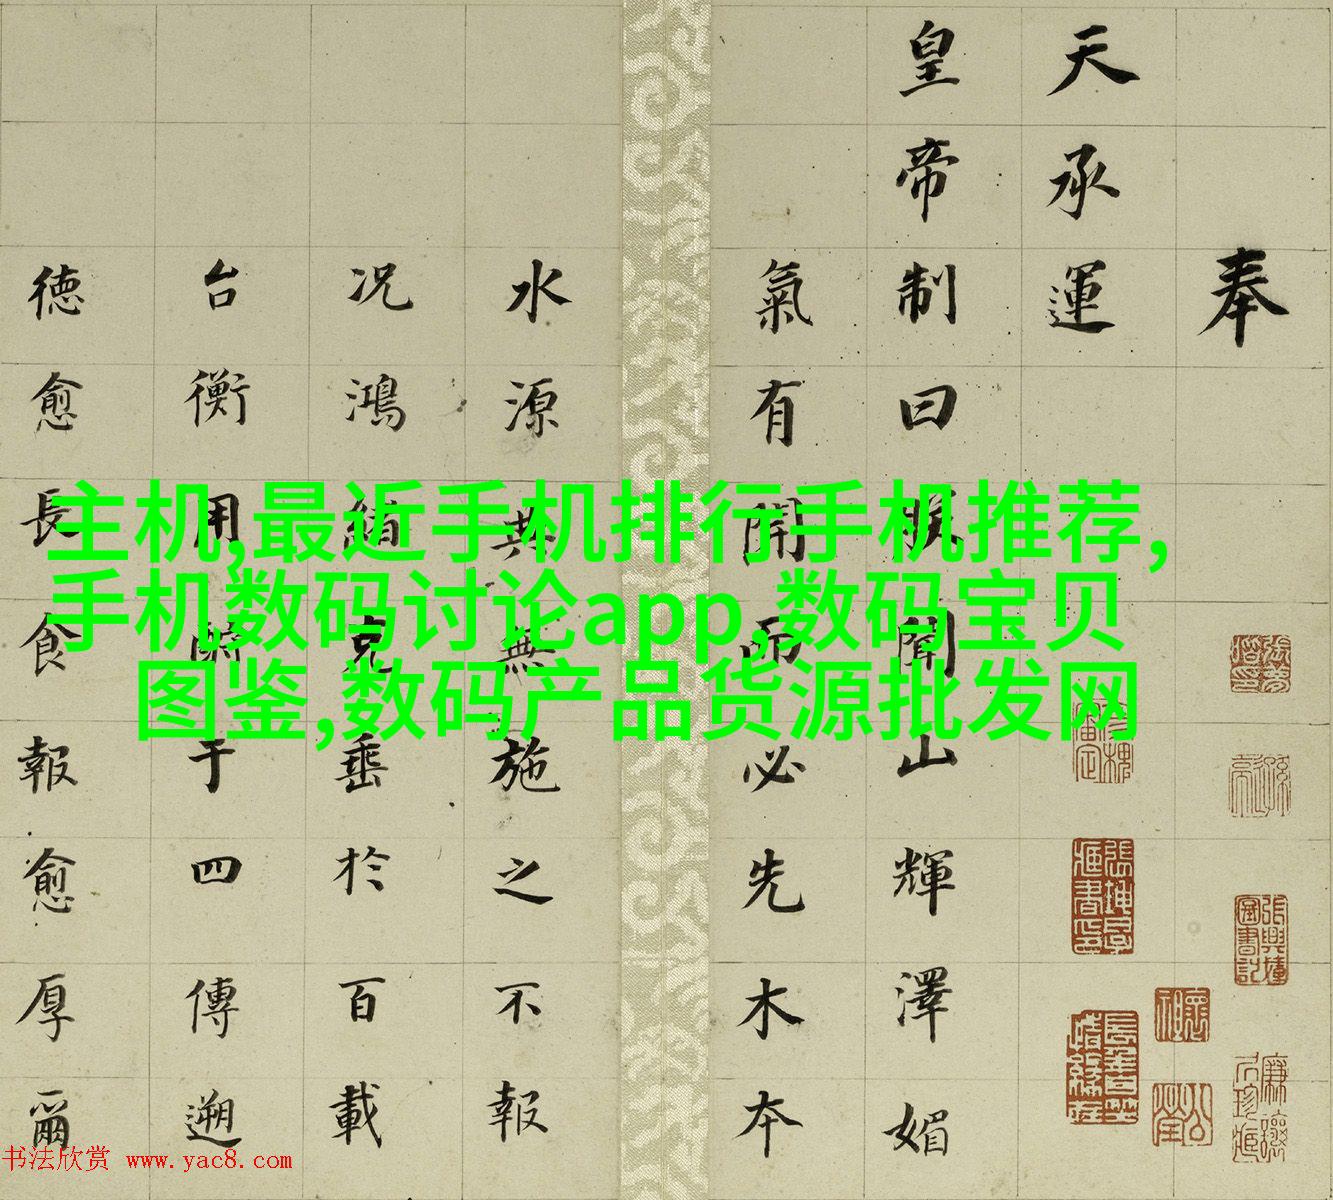 奉
天承運
皇帝制曰朕聞山輝澤媚
氣有開而必先木本
水源無施之不報
况鴻緒克垂於百載
台衡用于四傳遡
德愈長食報愈厚爾
主机,最近手机排行手机推荐,
手机数码讨论app,数码宝贝
图鉴,数码产品货源批发网
书法欣赏 www.yac8.com